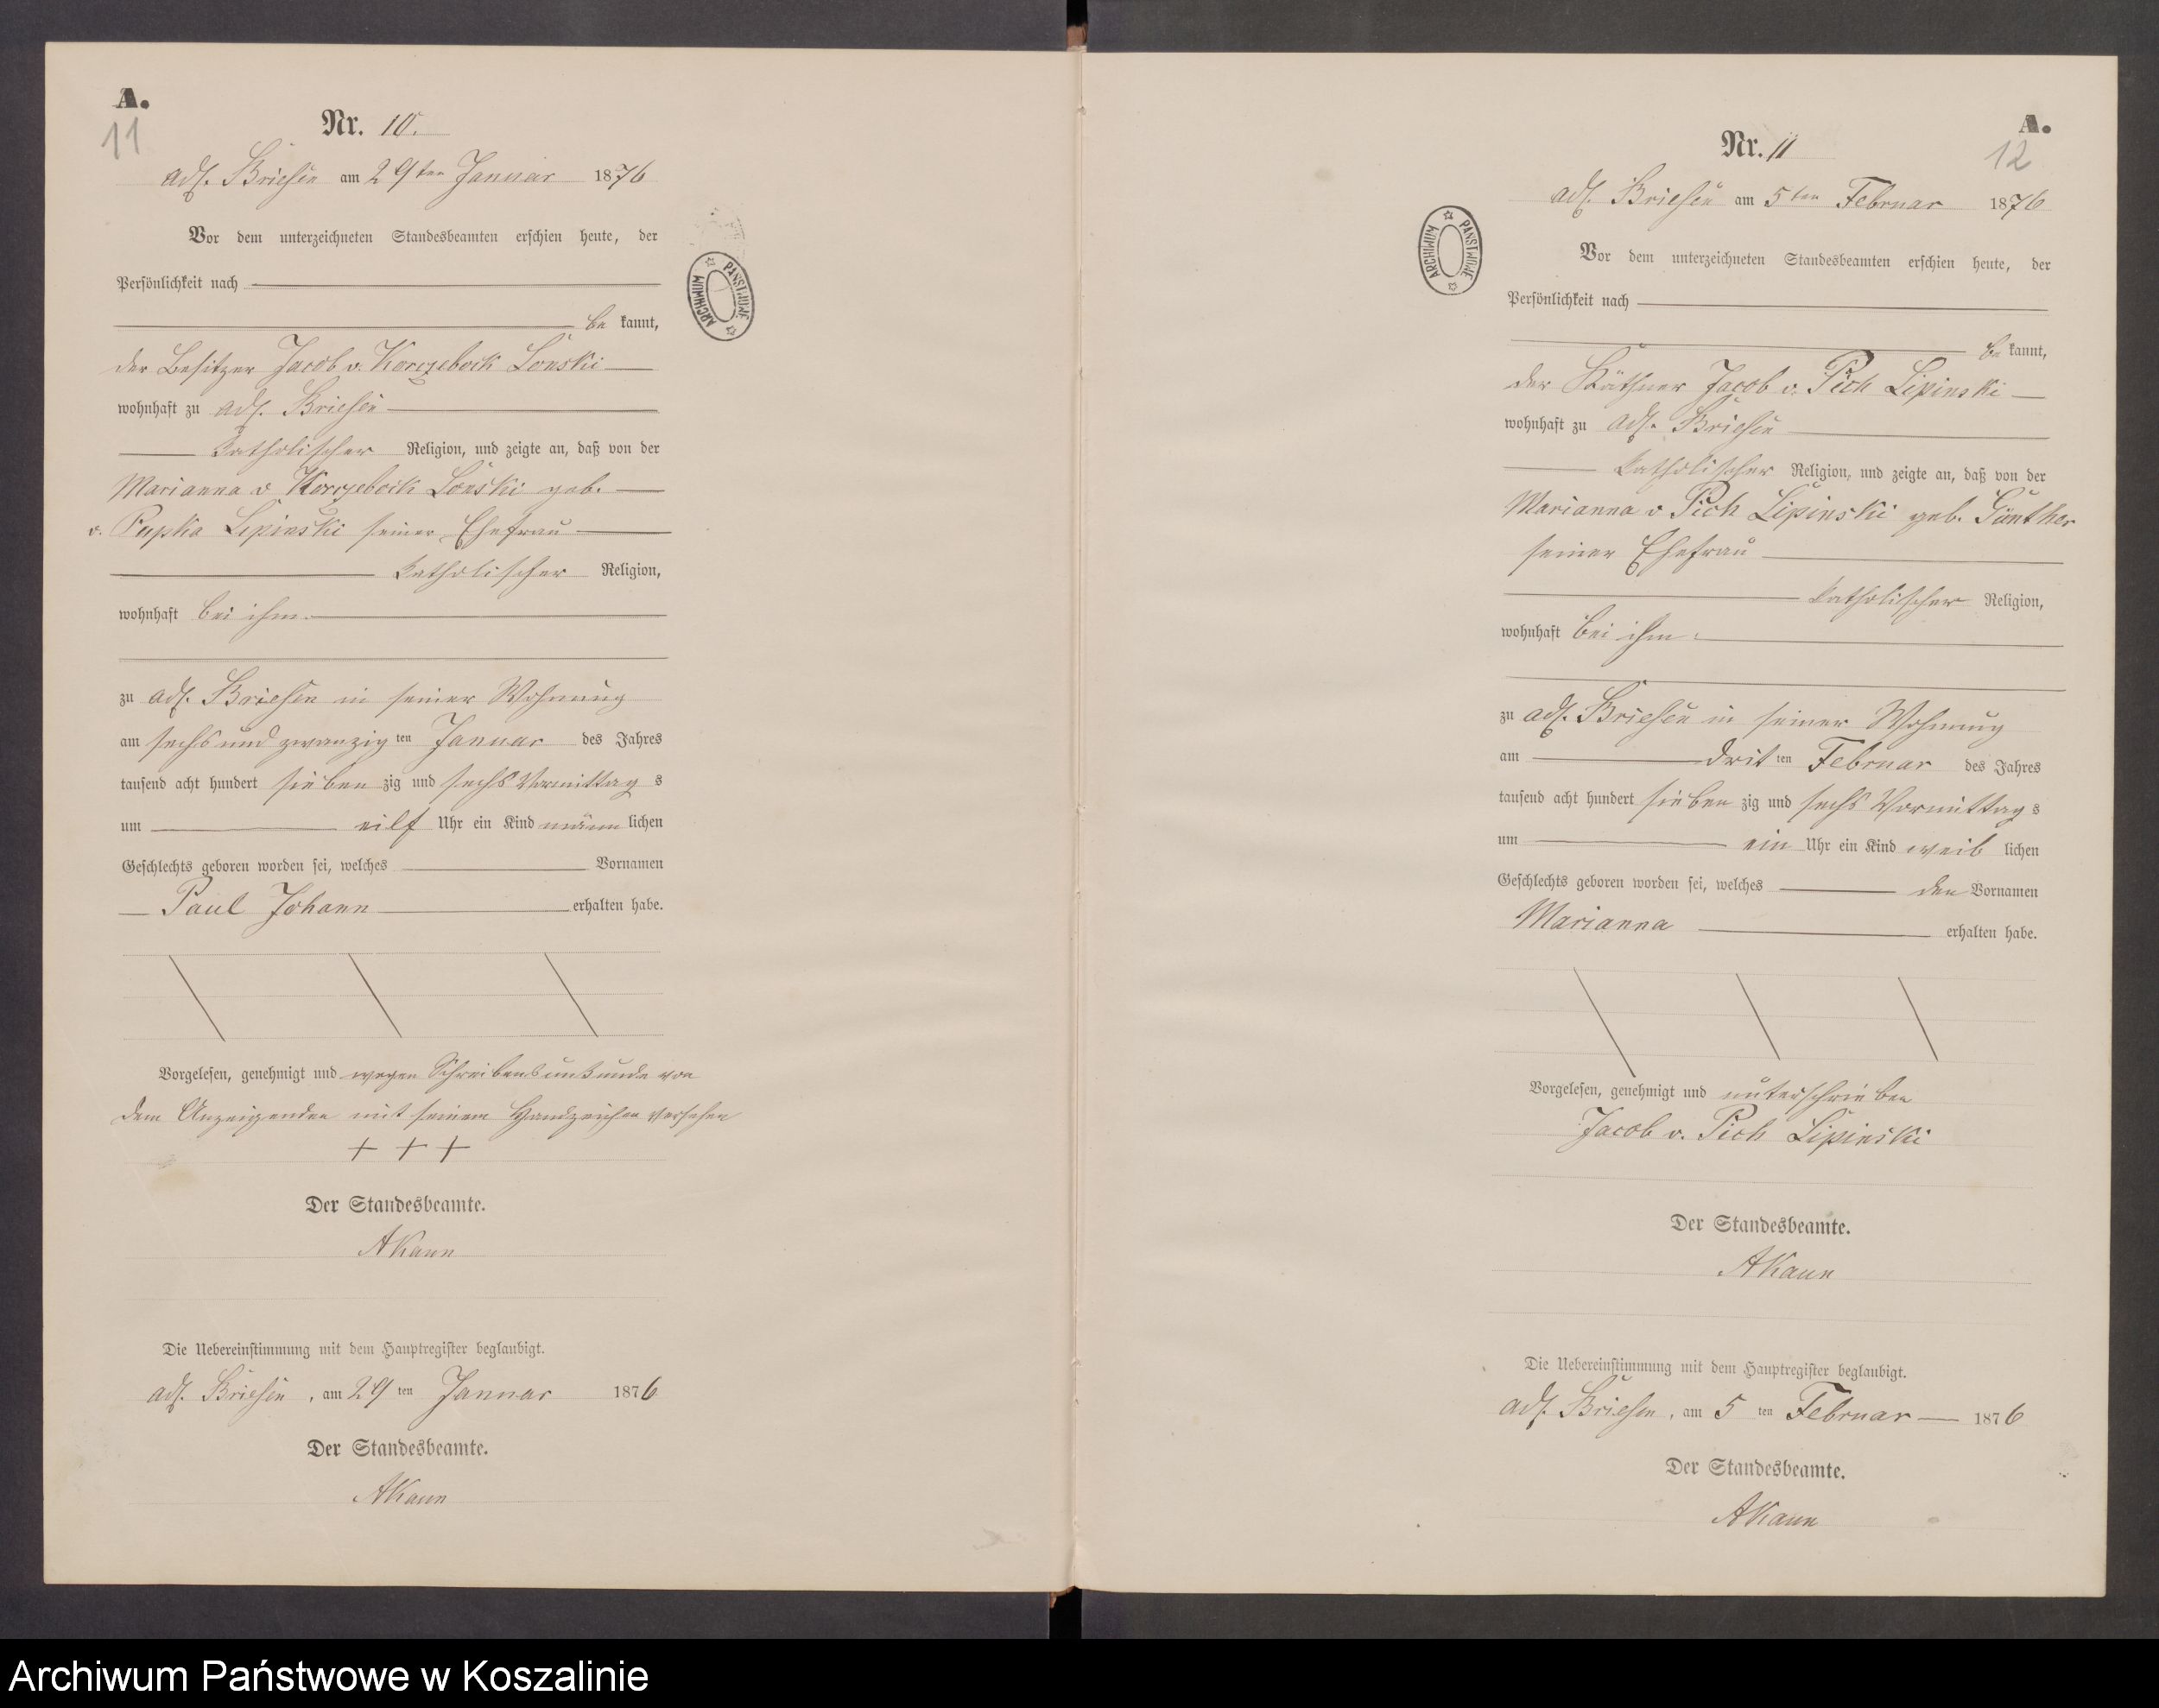 A.
11
Nr. 10.
adl. Briesen am 29ten Januar 1876
Vor dem unterzeichneten Standesbeamten erschien heute, der
Persönlichkeit nach
be kannt,
der Besitzer Jacob v. Korczebock Lonski
wohnhaft zu adl. Briesen
katholischer Religion, und zeigte an, daß von der
Marianna v Korczebock Lonski geb.
v. Pupka Lipinski seiner Ehefrau
katholischer Religion,
wohnhaft bei ihm.
zu adl. Briesen in seiner Wohnung
am sechs und zwanzig ten Januar des Jahres
tausend acht hundert sieben zig und sechs Vormittag s
um eilf Uhr ein Kind männ lichen
Geschlechts geboren worden sei, welches Vornamen
Paul Johann erhalten habe.
Vorgelesen, genehmigt und wegen Schreibensunkunde von
dem Anzeigenden mit seinem Handzeichen versehen
+ + +
Der Standesbeamte.
AKaun
Die Uebereinstimmung mit dem Hauptregister beglaubigt.
adl. Briesen, am 29 ten Januar 1876
Der Standesbeamte.
AKaun
ARCHIWUM PAŃSTWOWE
A.
12
Nr. 11
adl. Briesen am 5ten Februar 1876
Vor dem unterzeichneten Standesbeamten erschien heute, der
Persönlichkeit nach
be kannt,
der Käthner Jacob v. Pich Lipinski
wohnhaft zu adl. Briesen
katholischer Religion, und zeigte an, daß von der
Marianna v Pich Lipinski geb. Günther
seiner Ehefrau
katholischer Religion,
wohnhaft bei ihm.
zu adl. Briesen in seiner Wohnung
am drit ten Februar des Jahres
tausend acht hundert sieben zig und sechs Vormittag s
um ein Uhr ein Kind weib lichen
Geschlechts geboren worden sei, welches den Vornamen
Marianna erhalten habe.
Vorgelesen, genehmigt und unterschrieben
Jacob v. Pich Lipinski
Der Standesbeamte.
AKaun
Die Uebereinstimmung mit dem Hauptregister beglaubigt.
adl. Briesen, am 5 ten Februar 1876
Der Standesbeamte.
AKaun
ARCHIWUM PAŃSTWOWE
Archiwum Państwowe w Koszalinie